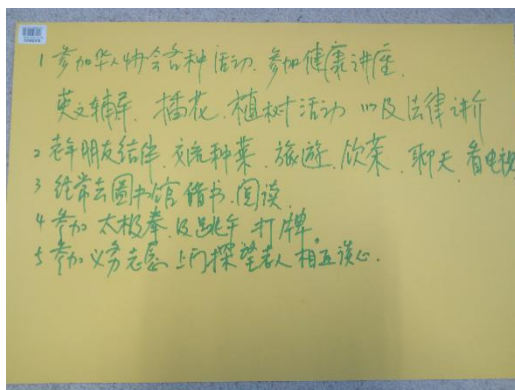 1 参加华人协会各种活动、参加健康讲座、
英文辅导、插花、植树活动 以及法律讲介
2 老年朋友结伴、交流种菜、旅遊、饮茶、聊天、看电视
3 经常去圖书馆借书、阅读
4 参加 太极拳、及跳舞 打牌。
5 参加义务志愿上门探望老人 相互谈心.